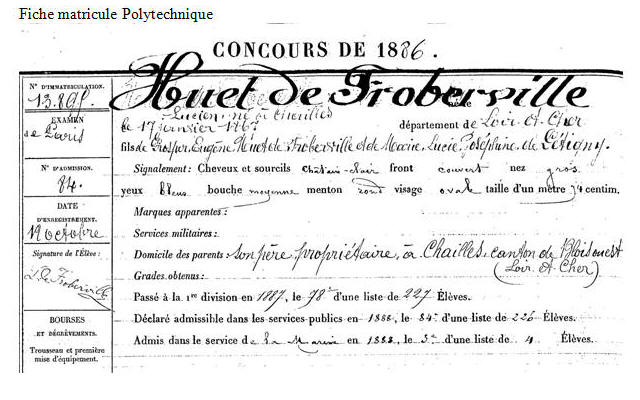 Fiche matricule Polytechnique
CONCOURS DE 1886.
N° D'IMMATRICULATION.
EXAMEN
de Paris
N° D'ADMISSION.
84.
DATE
D'ENREGISTREMENT.
octobre
Signature de l'Élève :
de Froberville
BOURSES
ET DÉGRÈVEMENTS.
Trousseau et première
mise d'équipement.
Huet de Froberville
Lucien né à Chailles
le 17 janvier 1867 département de Loir-et-Cher
fils de Prosper, Eugène Huet de Froberville et de Marie, Lucie, Joséphine de
Signalement : Cheveux et sourcils châtain-clair front couvert nez gros
yeux bleus bouche moyenne menton rond visage ovale taille d'un mètre 74 centim.
Marques apparentes :
Services militaires :
Domicile des parents : son père propriétaire, à Chailles, canton de Blois ouest
(Loir-et-Cher)
Grades obtenus :
Passé à la 1re division en 1887, le 78e d'une liste de 227 Élèves.
Déclaré admissible dans les services publics en 1888, le 84e d'une liste de 226 Élèves.
Admis dans le service de la Marine en 1888, le 3e d'une liste de 4 Élèves.